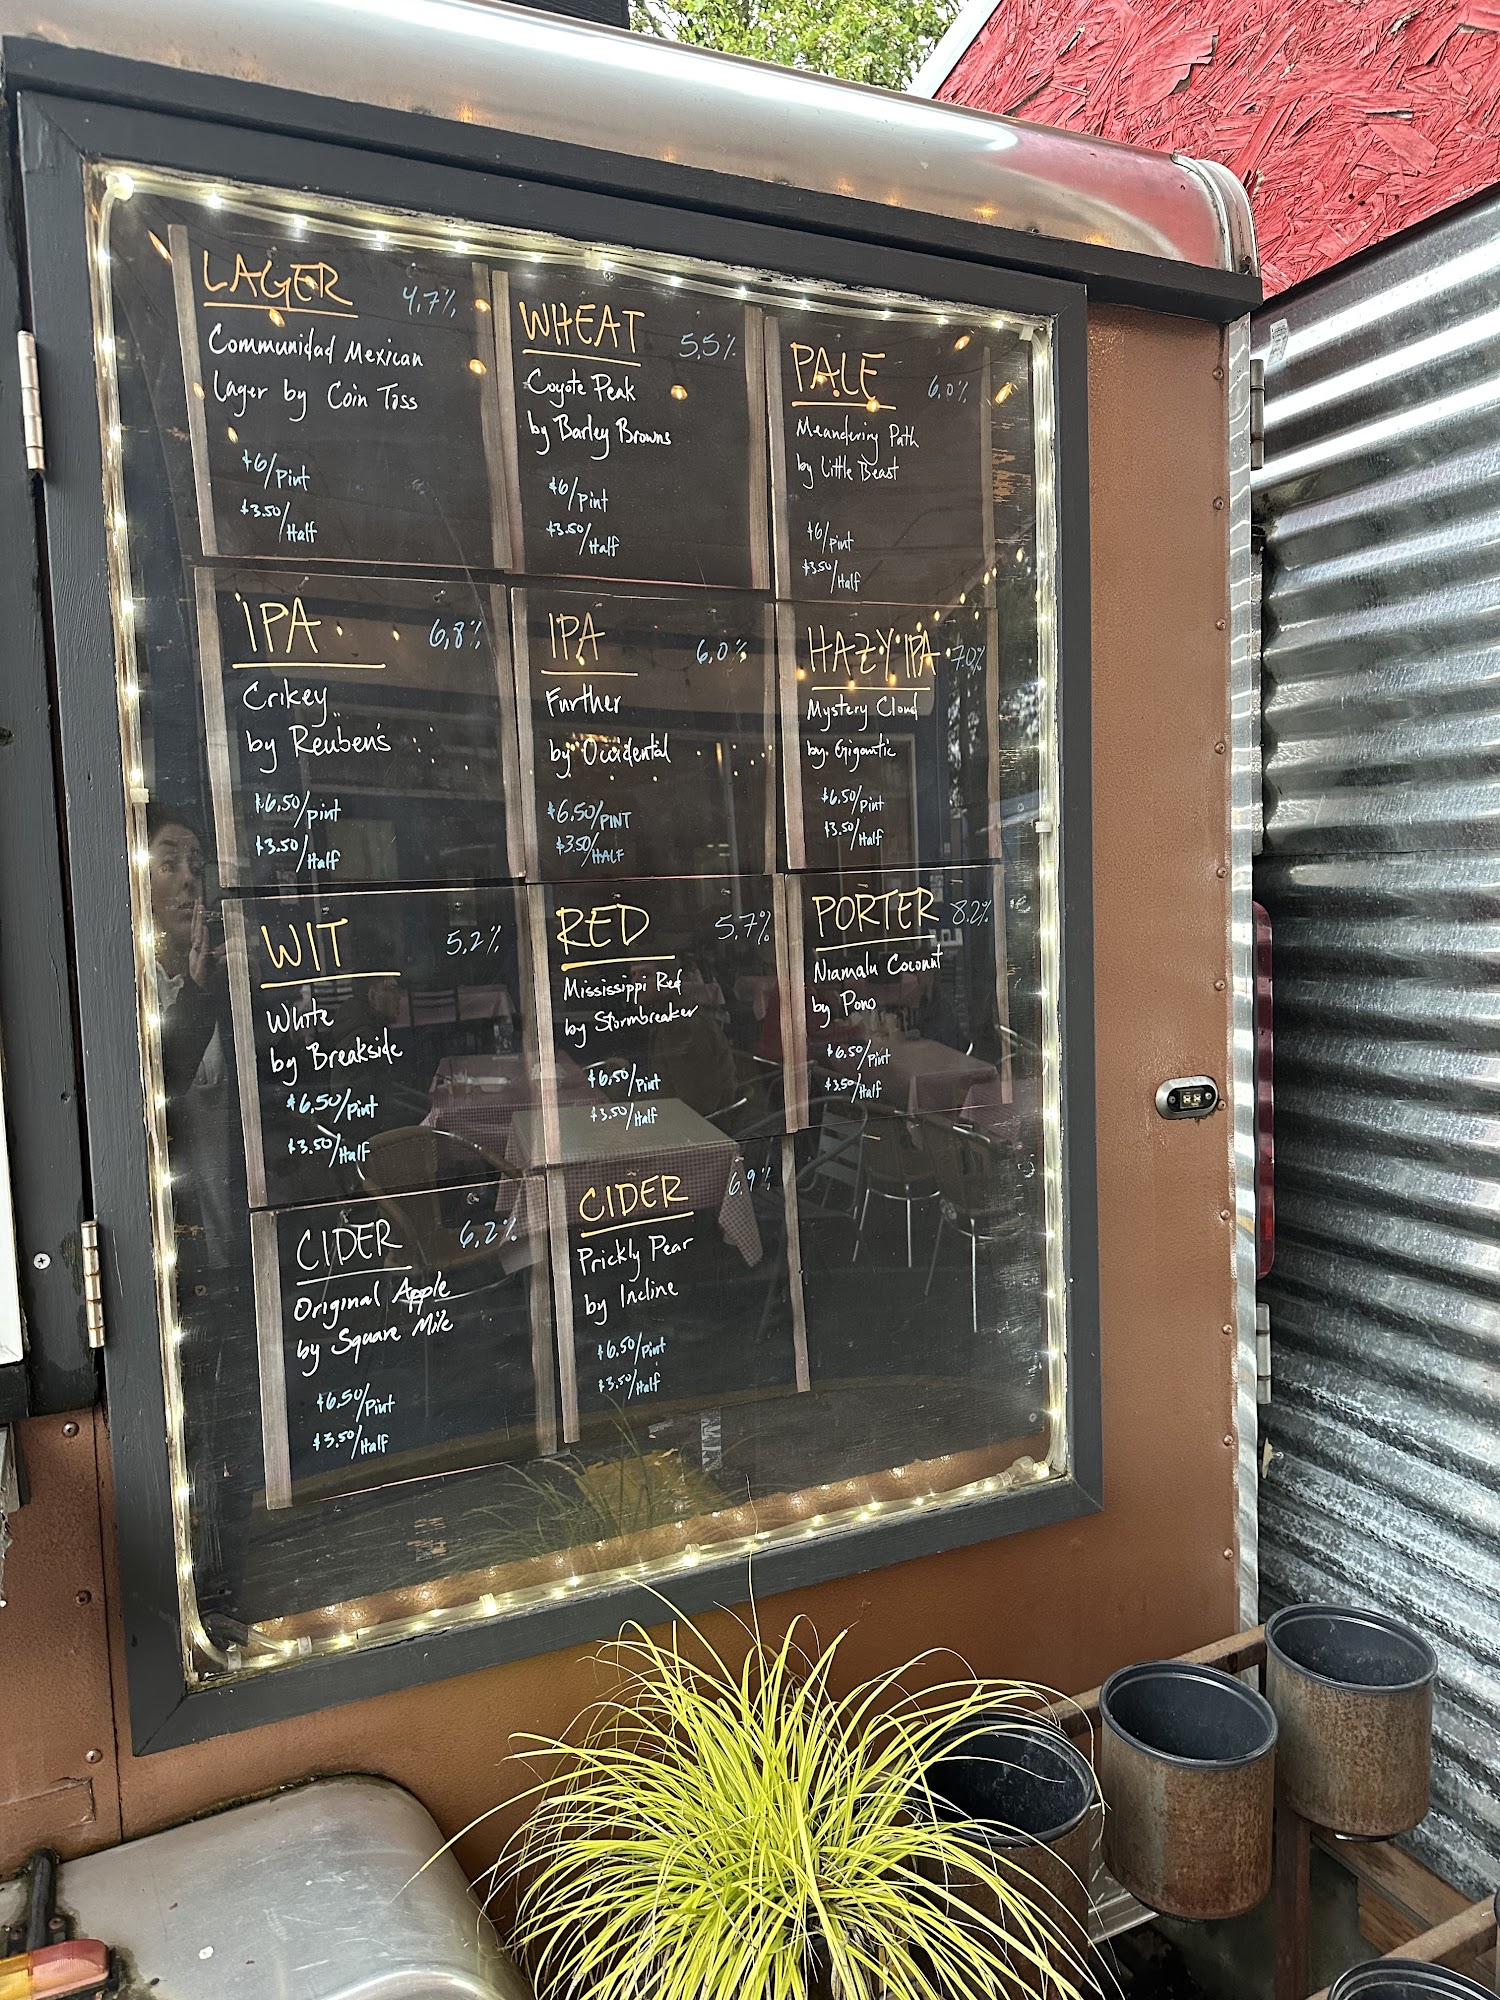 LAGER 4.7%
Communidad Mexican
Lager by Coin Toss
$6/Pint
$3.50/Half
WHEAT 5.5%
Coyote Peak
by Barley Browns
$6/Pint
$3.50/Half
PALE 6.0%
Meandering Path
by Little Beast
$6/Pint
$3.50/Half
IPA 6.8%
Crikey
by Reuben's
$6.50/Pint
$3.50/Half
IPA 6.0%
Further
by Occidental
$6.50/PINT
$3.50/HALF
HAZY IPA 7.0%
Mystery Cloud
by Gigantic
$6.50/Pint
$3.50/Half
WIT 5.2%
White
by Breakside
$6.50/Pint
$3.50/Half
RED 5.7%
Mississippi Red
by Stormbreaker
$6.50/Pint
$3.50/Half
PORTER 8.2%
Niamalu Coconut
by Pono
$6.50/Pint
$3.50/Half
CIDER 6.2%
Original Apple
by Square Mile
$6.50/Pint
$3.50/Half
CIDER 6.9%
Prickly Pear
by Incline
$6.50/Pint
$3.50/Half